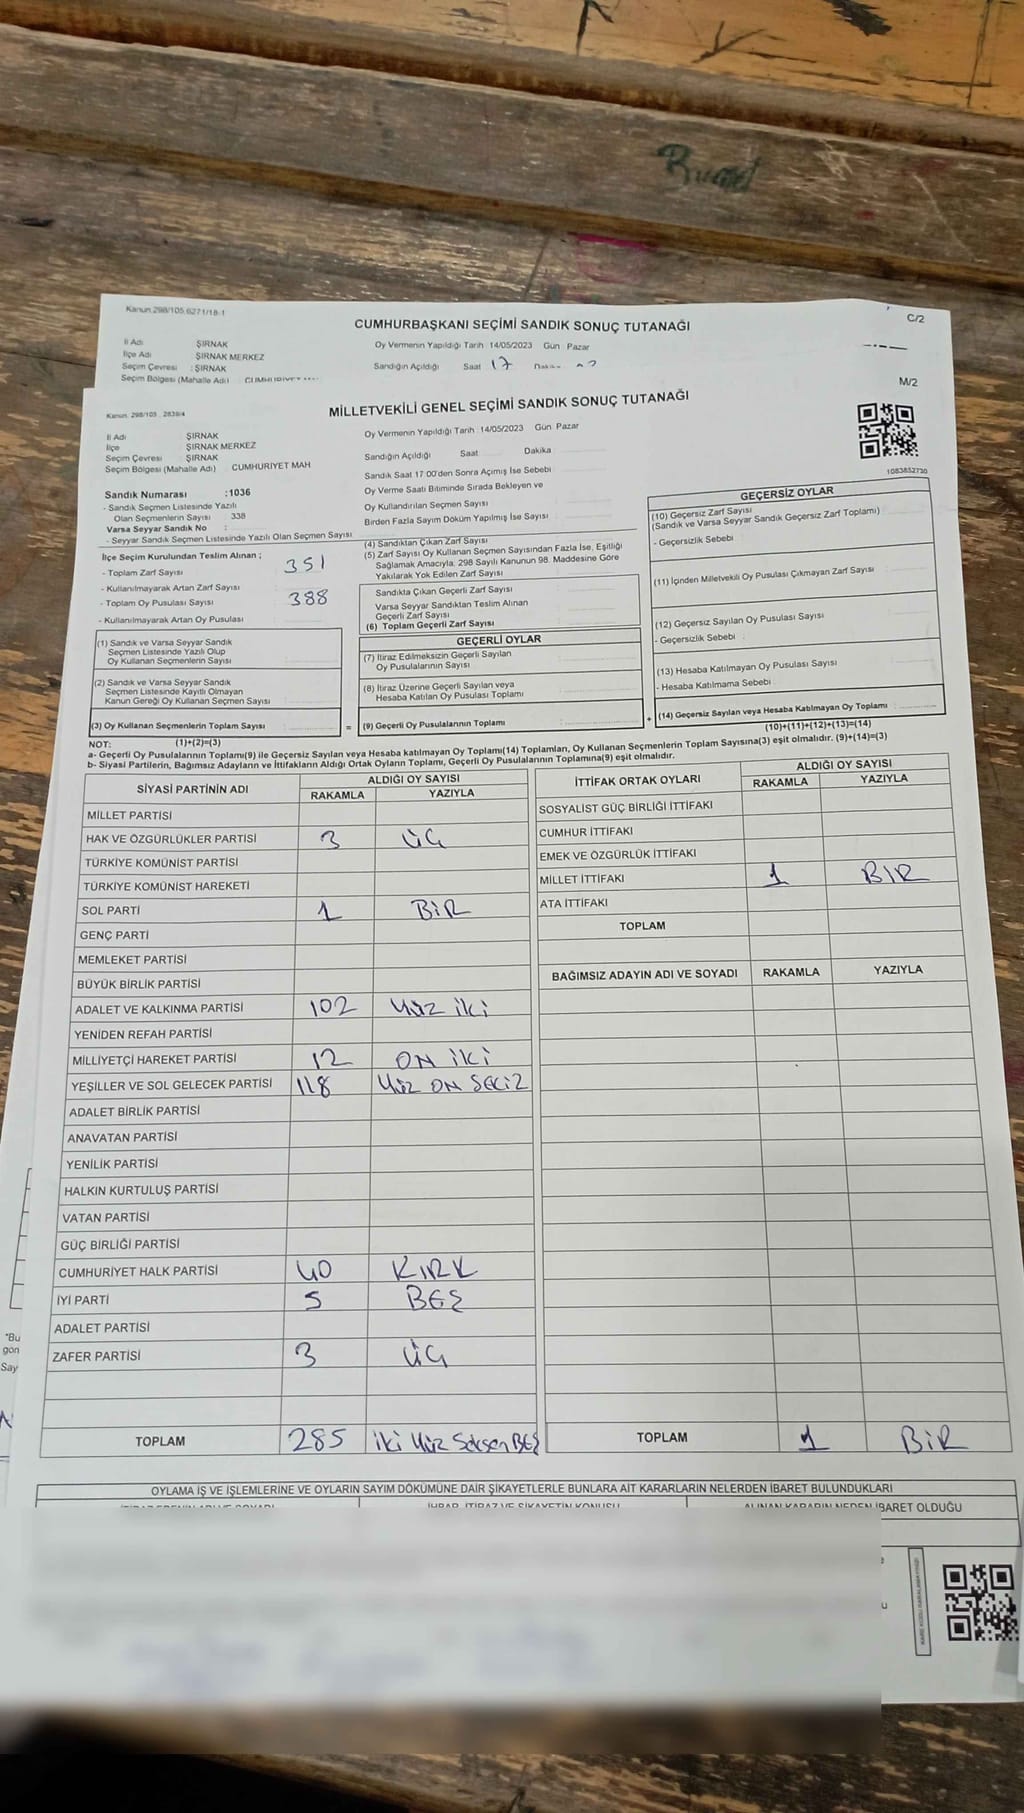 Bucmet
Kanun.298/105,6271/18-1
C/2
CUMHURBAŞKANI SEÇİMİ SANDIK SONUÇ TUTANAĞI
İl Adı ŞIRNAK
İlçe Adı ŞIRNAK MERKEZ
Seçim Çevresi : ŞIRNAK
Seçim Bölgesi (Mahalle Adı) : CUMHURİYET
Oy Vermenin Yapıldığı Tarih :14/05/2023 Gün Pazar
Sandığın Açıldığı Saat 17 Dakika
M/2
Kanun. 298/105 , 2839/4
MİLLETVEKİLİ GENEL SEÇİMİ SANDIK SONUÇ TUTANAĞI
İl Adı ŞIRNAK
İlçe ŞIRNAK MERKEZ
Seçim Çevresi ŞIRNAK
Seçim Bölgesi (Mahalle Adı) CUMHURİYET MAH
Sandık Numarası :1036
- Sandık Seçmen Listesinde Yazılı
Olan Seçmenlerin Sayısı 338
Varsa Seyyar Sandık No :
- Seyyar Sandık Seçmen Listesinde Yazılı Olan Seçmen Sayısı
İlçe Seçim Kurulundan Teslim Alınan ;
- Toplam Zarf Sayısı 351
- Kullanılmayarak Artan Zarf Sayısı
- Toplam Oy Pusulası Sayısı 388
- Kullanılmayarak Artan Oy Pusulası
(1) Sandık ve Varsa Seyyar Sandık
Seçmen Listesinde Yazılı Olup
Oy Kullanan Seçmenlerin Sayısı
(2) Sandık ve Varsa Seyyar Sandık
Seçmen Listesinde Kayıtlı Olmayan
Kanun Gereği Oy Kullanan Seçmen Sayısı
(3) Oy Kullanan Seçmenlerin Toplam Sayısı
(1)+(2)=(3)
Oy Vermenin Yapıldığı Tarih :14/05/2023 Gün Pazar
Sandığın Açıldığı Saat Dakika
Sandık Saat 17:00'den Sonra Açımış İse Sebebi
Oy Verme Saati Bitiminde Sırada Bekleyen ve
Oy Kullandırılan Seçmen Sayısı
Birden Fazla Sayım Döküm Yapılmış İse Sayısı
(4) Sandıktan Çıkan Zarf Sayısı
(5) Zarf Sayısı Oy Kullanan Seçmen Sayısından Fazla İse, Eşitliği
Sağlamak Amacıyla, 298 Sayılı Kanunun 98. Maddesine Göre
Yakılarak Yok Edilen Zarf Sayısı
Sandıkta Çıkan Geçerli Zarf Sayısı
Varsa Seyyar Sandıktan Teslim Alınan
Geçerli Zarf Sayısı
(6) Toplam Geçerli Zarf Sayısı
GEÇERLİ OYLAR
(7) İtiraz Edilmeksizin Geçerli Sayılan
Oy Pusulalarının Sayısı
(8) İtiraz Üzerine Geçerli Sayılan veya
Hesaba Katılan Oy Pusulası Toplamı
= (9) Geçerli Oy Pusulalarının Toplamı
1083852730
GEÇERSİZ OYLAR
(10) Geçersiz Zarf Sayısı
(Sandık ve Varsa Seyyar Sandık Geçersiz Zarf Toplamı)
- Geçersizlik Sebebi
(11) İçinden Milletvekili Oy Pusulası Çıkmayan Zarf Sayısı
(12) Geçersiz Sayılan Oy Pusulası Sayısı
- Geçersizlik Sebebi :
(13) Hesaba Katılmayan Oy Pusulası Sayısı
- Hesaba Katılmama Sebebi
+ (14) Geçersiz Sayılan veya Hesaba Katılmayan Oy Toplamı
(10)+(11)+(12)+(13)=(14)
NOT:
a- Geçerli Oy Pusulalarının Toplamı(9) ile Geçersiz Sayılan veya Hesaba katılmayan Oy Toplamı(14) Toplamları, Oy Kullanan Seçmenlerin Toplam Sayısına(3) eşit olmalıdır. (9)+(14)=(3)
b- Siyasi Partilerin, Bağımsız Adayların ve İttifakların Aldığı Ortak Oyların Toplamı, Geçerli Oy Pusulalarının Toplamına(9) eşit olmalıdır.
SİYASİ PARTİNİN ADI ALDIĞI OY SAYISI
RAKAMLA YAZIYLA
MİLLET PARTİSİ
HAK VE ÖZGÜRLÜKLER PARTİSİ 3 ÜÇ
TÜRKİYE KOMÜNİST PARTİSİ
TÜRKİYE KOMÜNİST HAREKETİ
SOL PARTİ 1 BİR
GENÇ PARTİ
MEMLEKET PARTİSİ
BÜYÜK BİRLİK PARTİSİ
ADALET VE KALKINMA PARTİSİ 102 Yüz iki
YENİDEN REFAH PARTİSİ
MİLLİYETÇİ HAREKET PARTİSİ 12 ON İKİ
YEŞİLLER VE SOL GELECEK PARTİSİ 118 Yüz ON SECİZ
ADALET BİRLİK PARTİSİ
ANAVATAN PARTİSİ
YENİLİK PARTİSİ
HALKIN KURTULUŞ PARTİSİ
VATAN PARTİSİ
GÜÇ BİRLİĞİ PARTİSİ
CUMHURİYET HALK PARTİSİ 40 KIRK
İYİ PARTİ 5 BEŞ
ADALET PARTİSİ
ZAFER PARTİSİ 3 ÜÇ
TOPLAM 285 iki Yüz Seksen BEŞ
İTTİFAK ORTAK OYLARI ALDIĞI OY SAYISI
RAKAMLA YAZIYLA
SOSYALİST GÜÇ BİRLİĞİ İTTİFAKI
CUMHUR İTTİFAKI
EMEK VE ÖZGÜRLÜK İTTİFAKI
MİLLET İTTİFAKI 1 BİR
ATA İTTİFAKI
TOPLAM
BAĞIMSIZ ADAYIN ADI VE SOYADI RAKAMLA YAZIYLA
TOPLAM 1 BİR
OYLAMA İŞ VE İŞLEMLERİNE VE OYLARIN SAYIM DÖKÜMÜNE DAİR ŞİKAYETLERLE BUNLARA AİT KARARLARIN NELERDEN İBARET BULUNDUKLARI
İHBAR, İTİRAZ VE ŞİKAYETİN KONUSU ALINAN KARARIN NEDEN İBARET OLDUĞU
"Bu
gön
Say